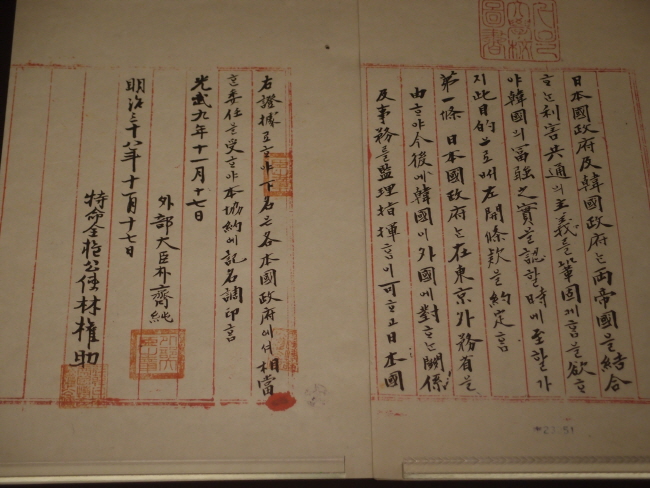 서울
大學校
圖書
日本國政府及韓國政府는兩帝國을結合
ᄒᆞ는利害共通의主義를鞏固케홈을欲ᄒᆞ
야韓國의富强之實을認ᄒᆞᆯ時에至ᄒᆞᆯ가
지此目的으로써左開條款을約定홈
第一條 日本國政府는在東京外務省을
由ᄒᆞ야今後에韓國이外國에對ᄒᆞ는關係
及事務를監理指揮홈이可ᄒᆞ고日本國
右證據로ᄒᆞ야下名은各本國政府에셔相當
ᄒᆞᆫ委任을受ᄒᆞ야本協約에記名調印홈
光武九年十一月十七日
外部大臣朴齊純
明治三十八年十一月十七日
特命全權公使林權助